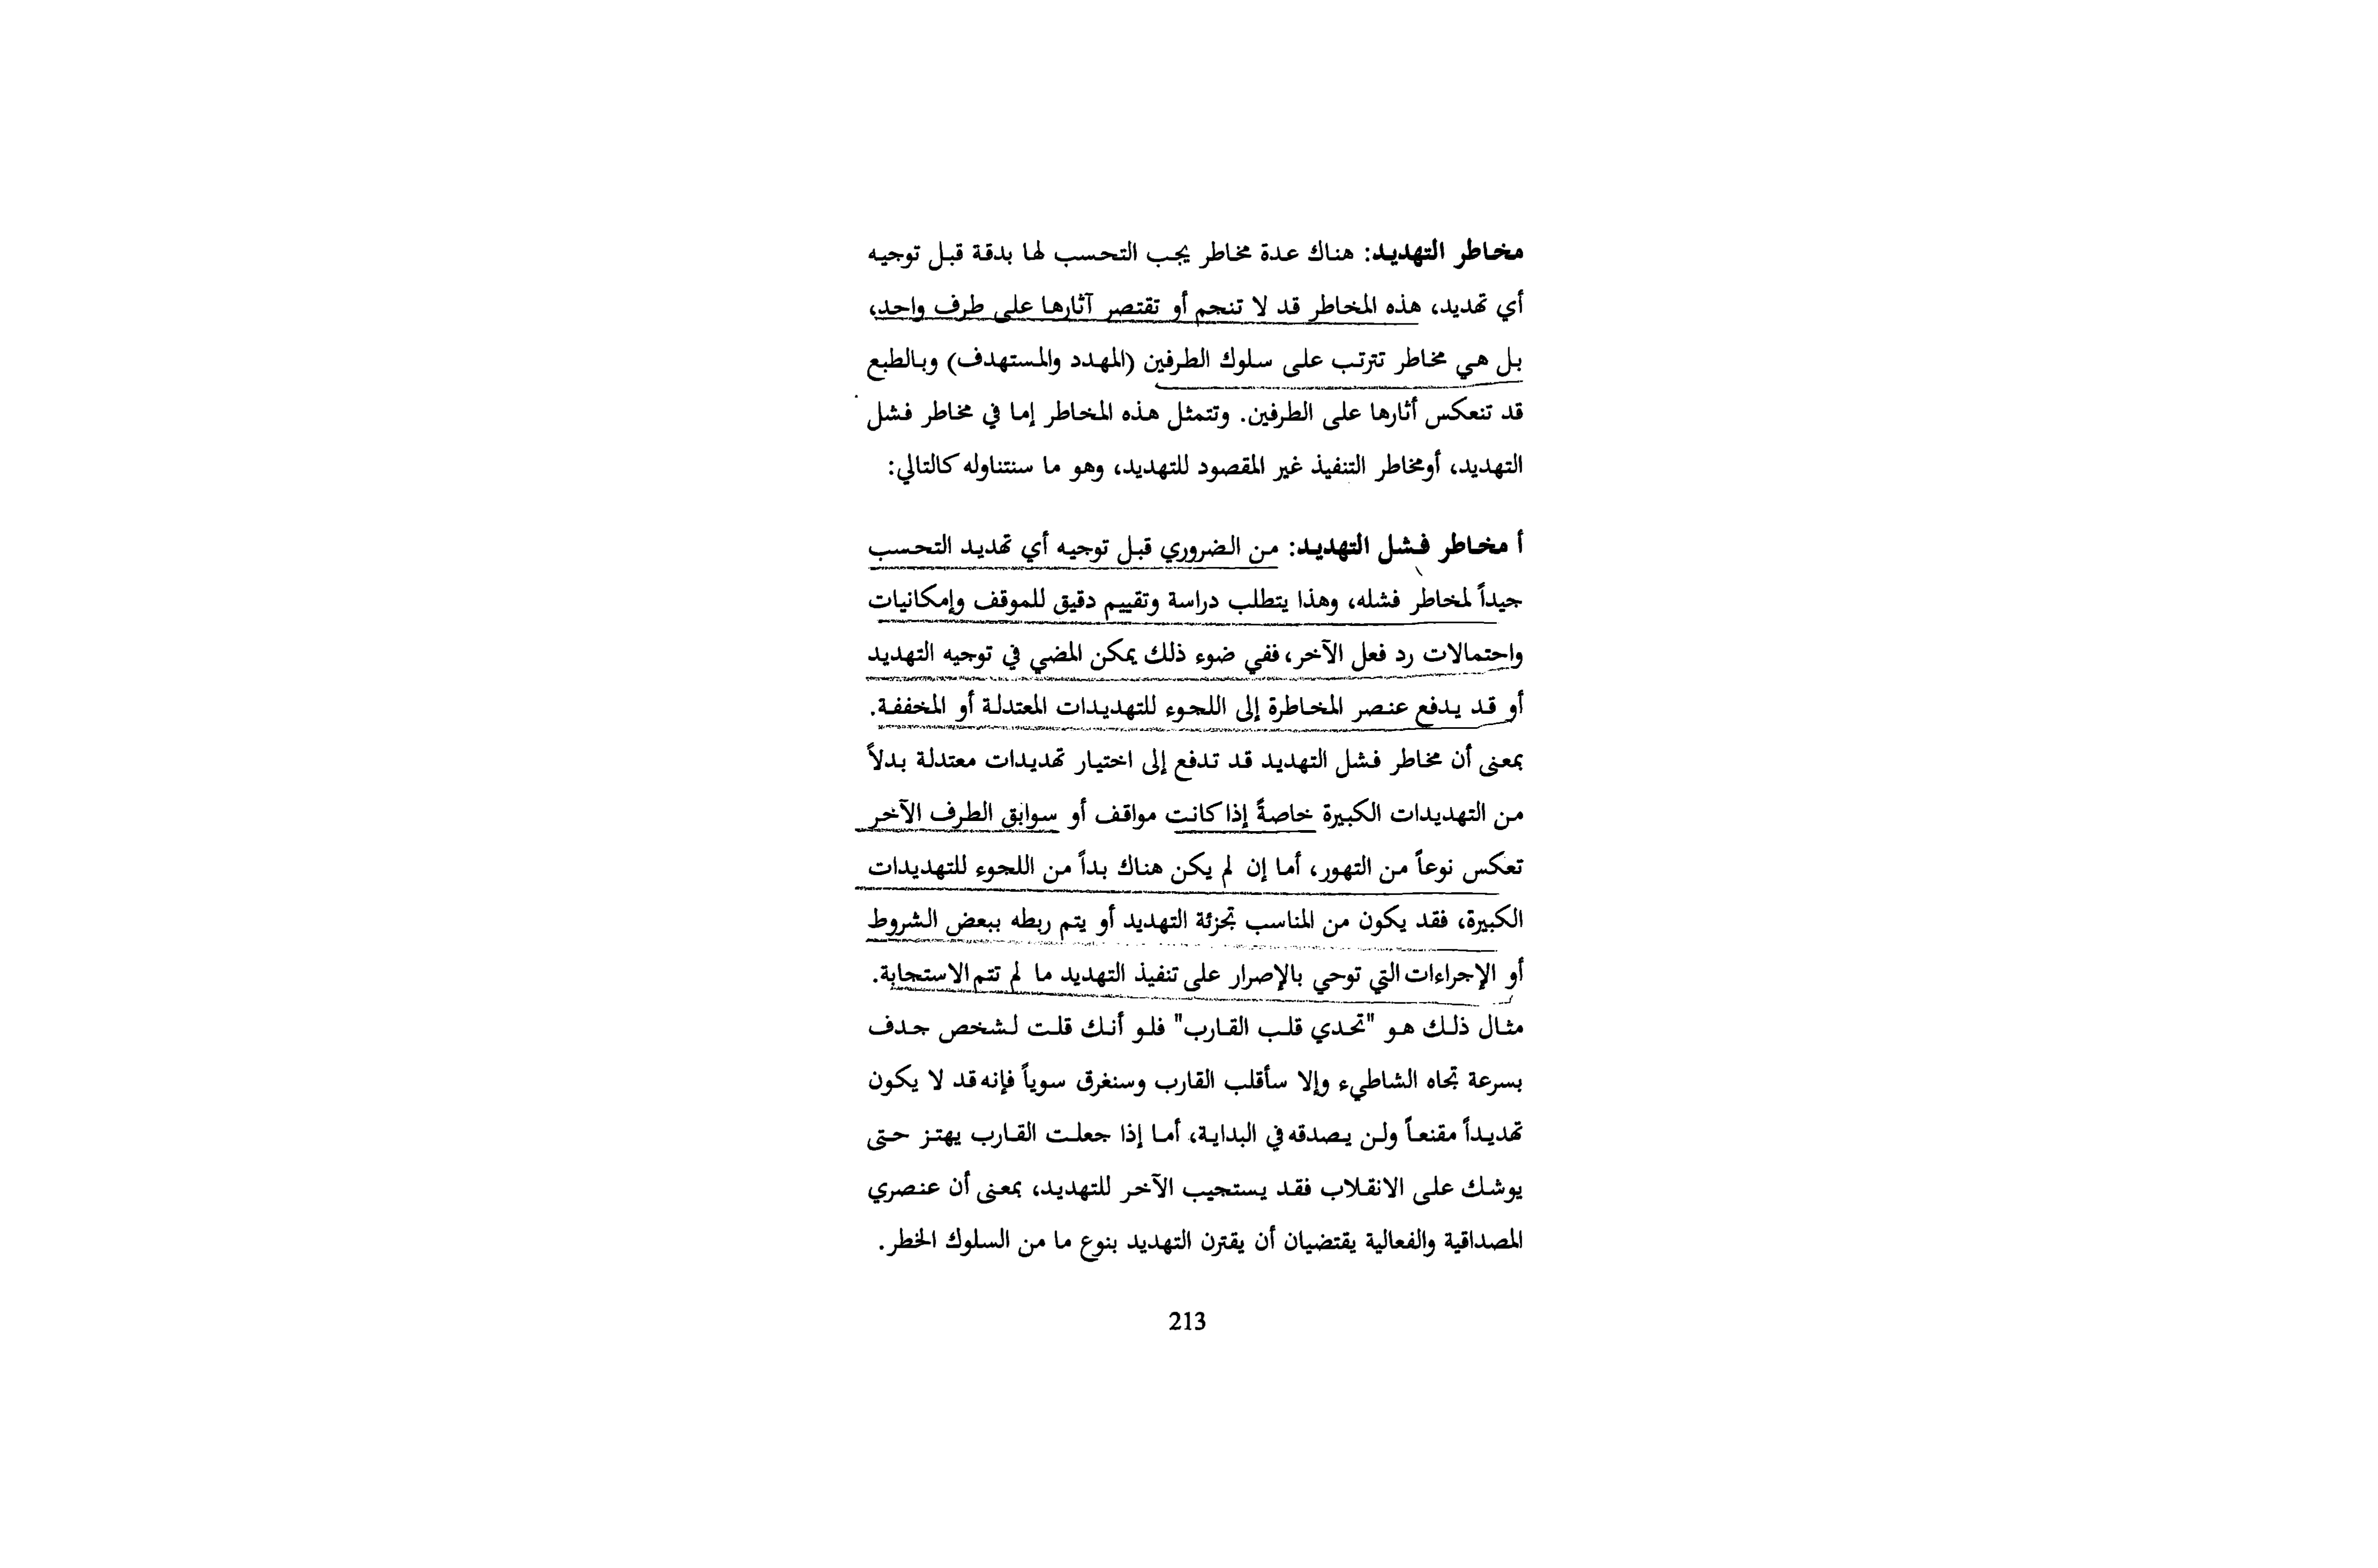 مخاطر التهديد: هناك عدة مخاطر يجب التحسب لها بدقة قبل توجيه
أي تهديد، هذه المخاطر قد لا تنجم أو تقتصر آثارها على طرف واحد،
بل هي مخاطر تترتب على سلوك الطرفين (المهدد والمستهدف) وبالطبع
قد تنعكس أثارها على الطرفين. وتتمثل هذه المخاطر إما في مخاطر فشل
التهديد، أومخاطر التنفيذ غير المقصود للتهديد، وهو ما سنتناوله كالتالي:
أ مخاطر فشل التهديد: من الضروري قبل توجيه أي تهديد التحسب
جيداً لمخاطر فشله، وهذا يتطلب دراسة وتقييم دقيق للموقف وإمكانيات
واحتمالات رد فعل الآخر، ففي ضوء ذلك يمكن المضي في توجيه التهديد
أو قد يدفع عنصر المخاطرة إلى اللجوء للتهديدات المعتدلة أو المخففة.
بمعنى أن مخاطر فشل التهديد قد تدفع إلى اختيار تهديدات معتدلة بدلاً
من التهديدات الكبيرة خاصةً إذا كانت مواقف أو سوابق الطرف الآخر
تعكس نوعاً من التهور، أما إن لم يكن هناك بداً من اللجوء للتهديدات
الكبيرة، فقد يكون من المناسب تجزئة التهديد أو يتم ربطه ببعض الشروط
أو الإجراءات التي توحي بالإصرار على تنفيذ التهديد ما لم تتم الاستجابة.
مثال ذلك هو "تحدي قلب القارب" فلو أنك قلت لشخص جدف
بسرعة تجاه الشاطيء وإلا سأقلب القارب وسنغرق سوياً فإنه قد لا يكون
تهديداً مقنعاً ولن يصدقه في البداية، أما إذا جعلت القارب يهتز حتى
يوشك على الانقلاب فقد يستجيب الآخر للتهديد، بمعنى أن عنصري
المصداقية والفعالية يقتضيان أن يقترن التهديد بنوع ما من السلوك الخطر.
213